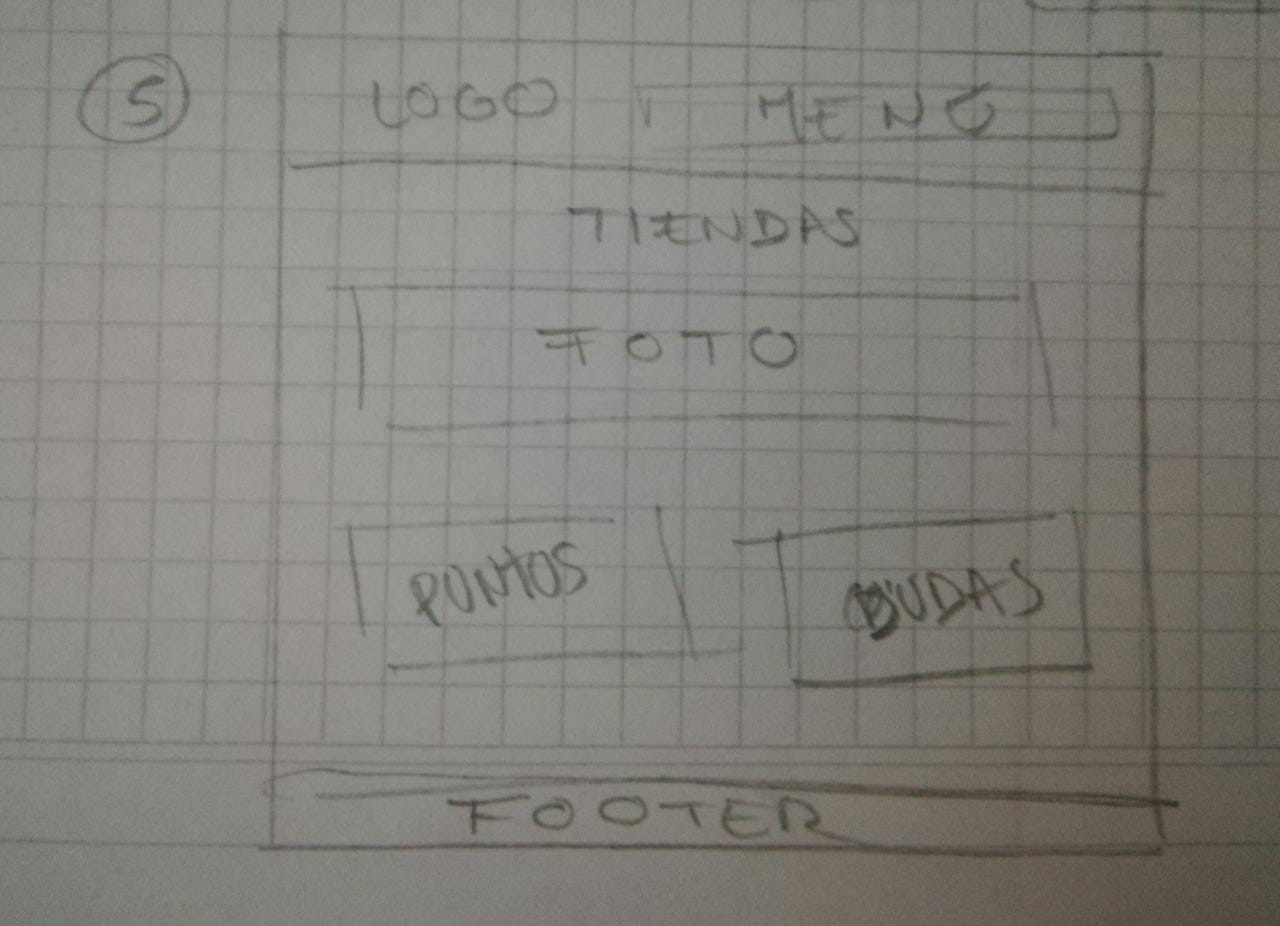 5 LOGO MENÚ
TIENDAS
FOTO
PUNTOS DUDAS
FOOTER